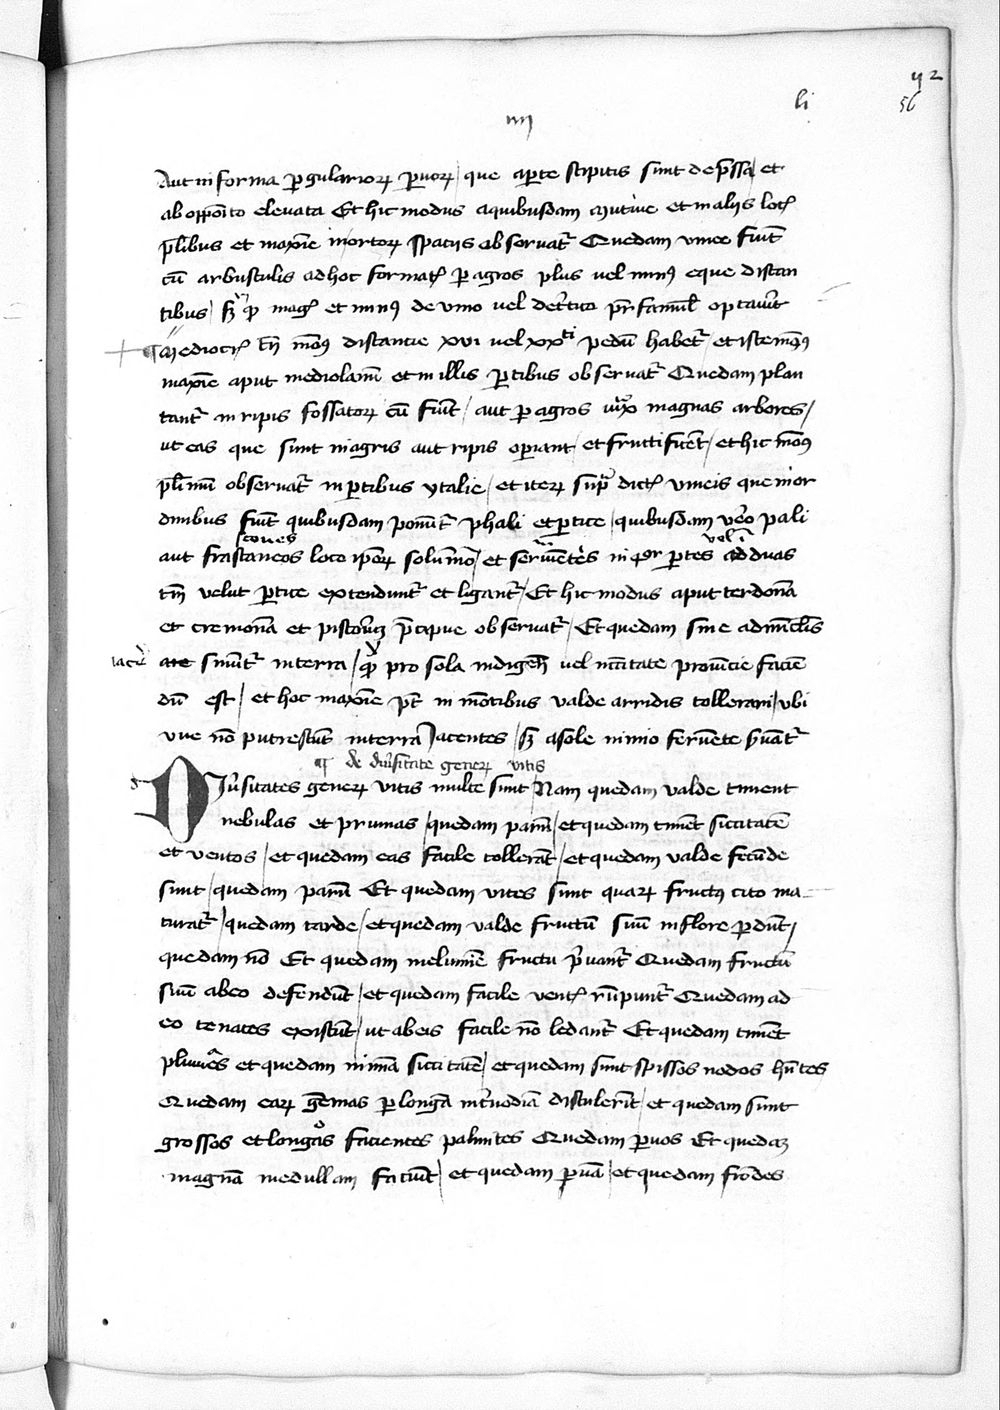 42
li 56
iiij
Aut in forma pergulariorum paruorum / que aperte stipitis sunt depressa / et
ab opposito eleuata Et hic modus a quibusdam mutine et in aliis locis
pluribus et maxime in ortorum spatiis obseruatur Quedam vinee fiunt
cum arbusculis ad hoc formatis per agros plus vel minus eque distan
tibus / secundum quod magis et minus de vino vel de tritico paterfamilias optauerit
Mediocris tamen modus distantie xvi vel xxti pedum habetur / et iste modus
maxime aput mediolanum et in illis partibus obseruatur Quedam plan
tantur in ripis fossatorum cum fiunt / aut per agros iuxta magnas arbores /
ut eas que sunt in agris aut ripis operiant / et fructificent / et hic modus
plurimum obseruatur in partibus ytalie / et iterum supra dictis vineis que in or
dinibus fiunt quibusdam ponuntur phali et pertice / quibusdam vero pali
aut frastaneos loco ipsorum solummodo / et seruientes in quatuor partes ad duas
tantum velut pertice extenduntur et ligantur / Et hic modus aput terdonam
et cremonam et pistorium precipue obseruatur / Et quedam sine adminiculis
sinuntur in terra / quod pro sola indigentia vel necessitate prouincie facien
dum est / et hoc maxime potest in montibus valde arridis tollerari / vbi
vue non putrescunt in terra Jacentes / sed a sole nimio feruente seruantur
de diuersitate generum vitis
Diuersitates generum vitis multe sunt / Nam quedam valde timent
nebulas et pruinas / quedam parum / et quedam timent siccitatem
et ventos / et quedam eas facile tollerant / et quedam valde fecunde
sunt / quedam parum Et quedam vites sunt quarum fructus cito ma-
turatur / quedam tarde / et quedam valde fructum suum in flore perdunt /
quedam non Et quedam in elumine fructu priuantur Quedam fructum
suum ab eo defendunt / et quedam facile ventis rumpuntur Quedam ad
eo tenaces existunt / ut ab eis facile non ledantur Et quedam timent
pluuias et quedam nimiam siccitatem / et quedam sunt spissos nodos habentes
Quedam earum gemmas per longa internodia distulerunt / et quedam sunt
grossos et longos facientes palmites Quedam paruos Et quedam
magnam medullam faciunt / et quedam paruam / et quedam frondes